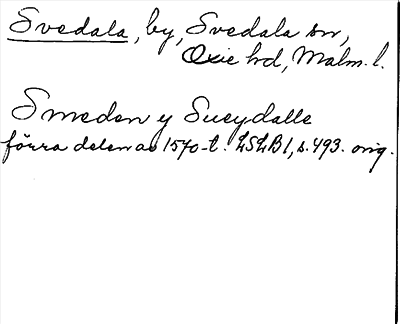 Svedala, by, Svedala sn,
Oxie hd, Malm. l.
Smeden y Sueydalle
förra delen av 1570-t. LSLB1, s. 493. orig.